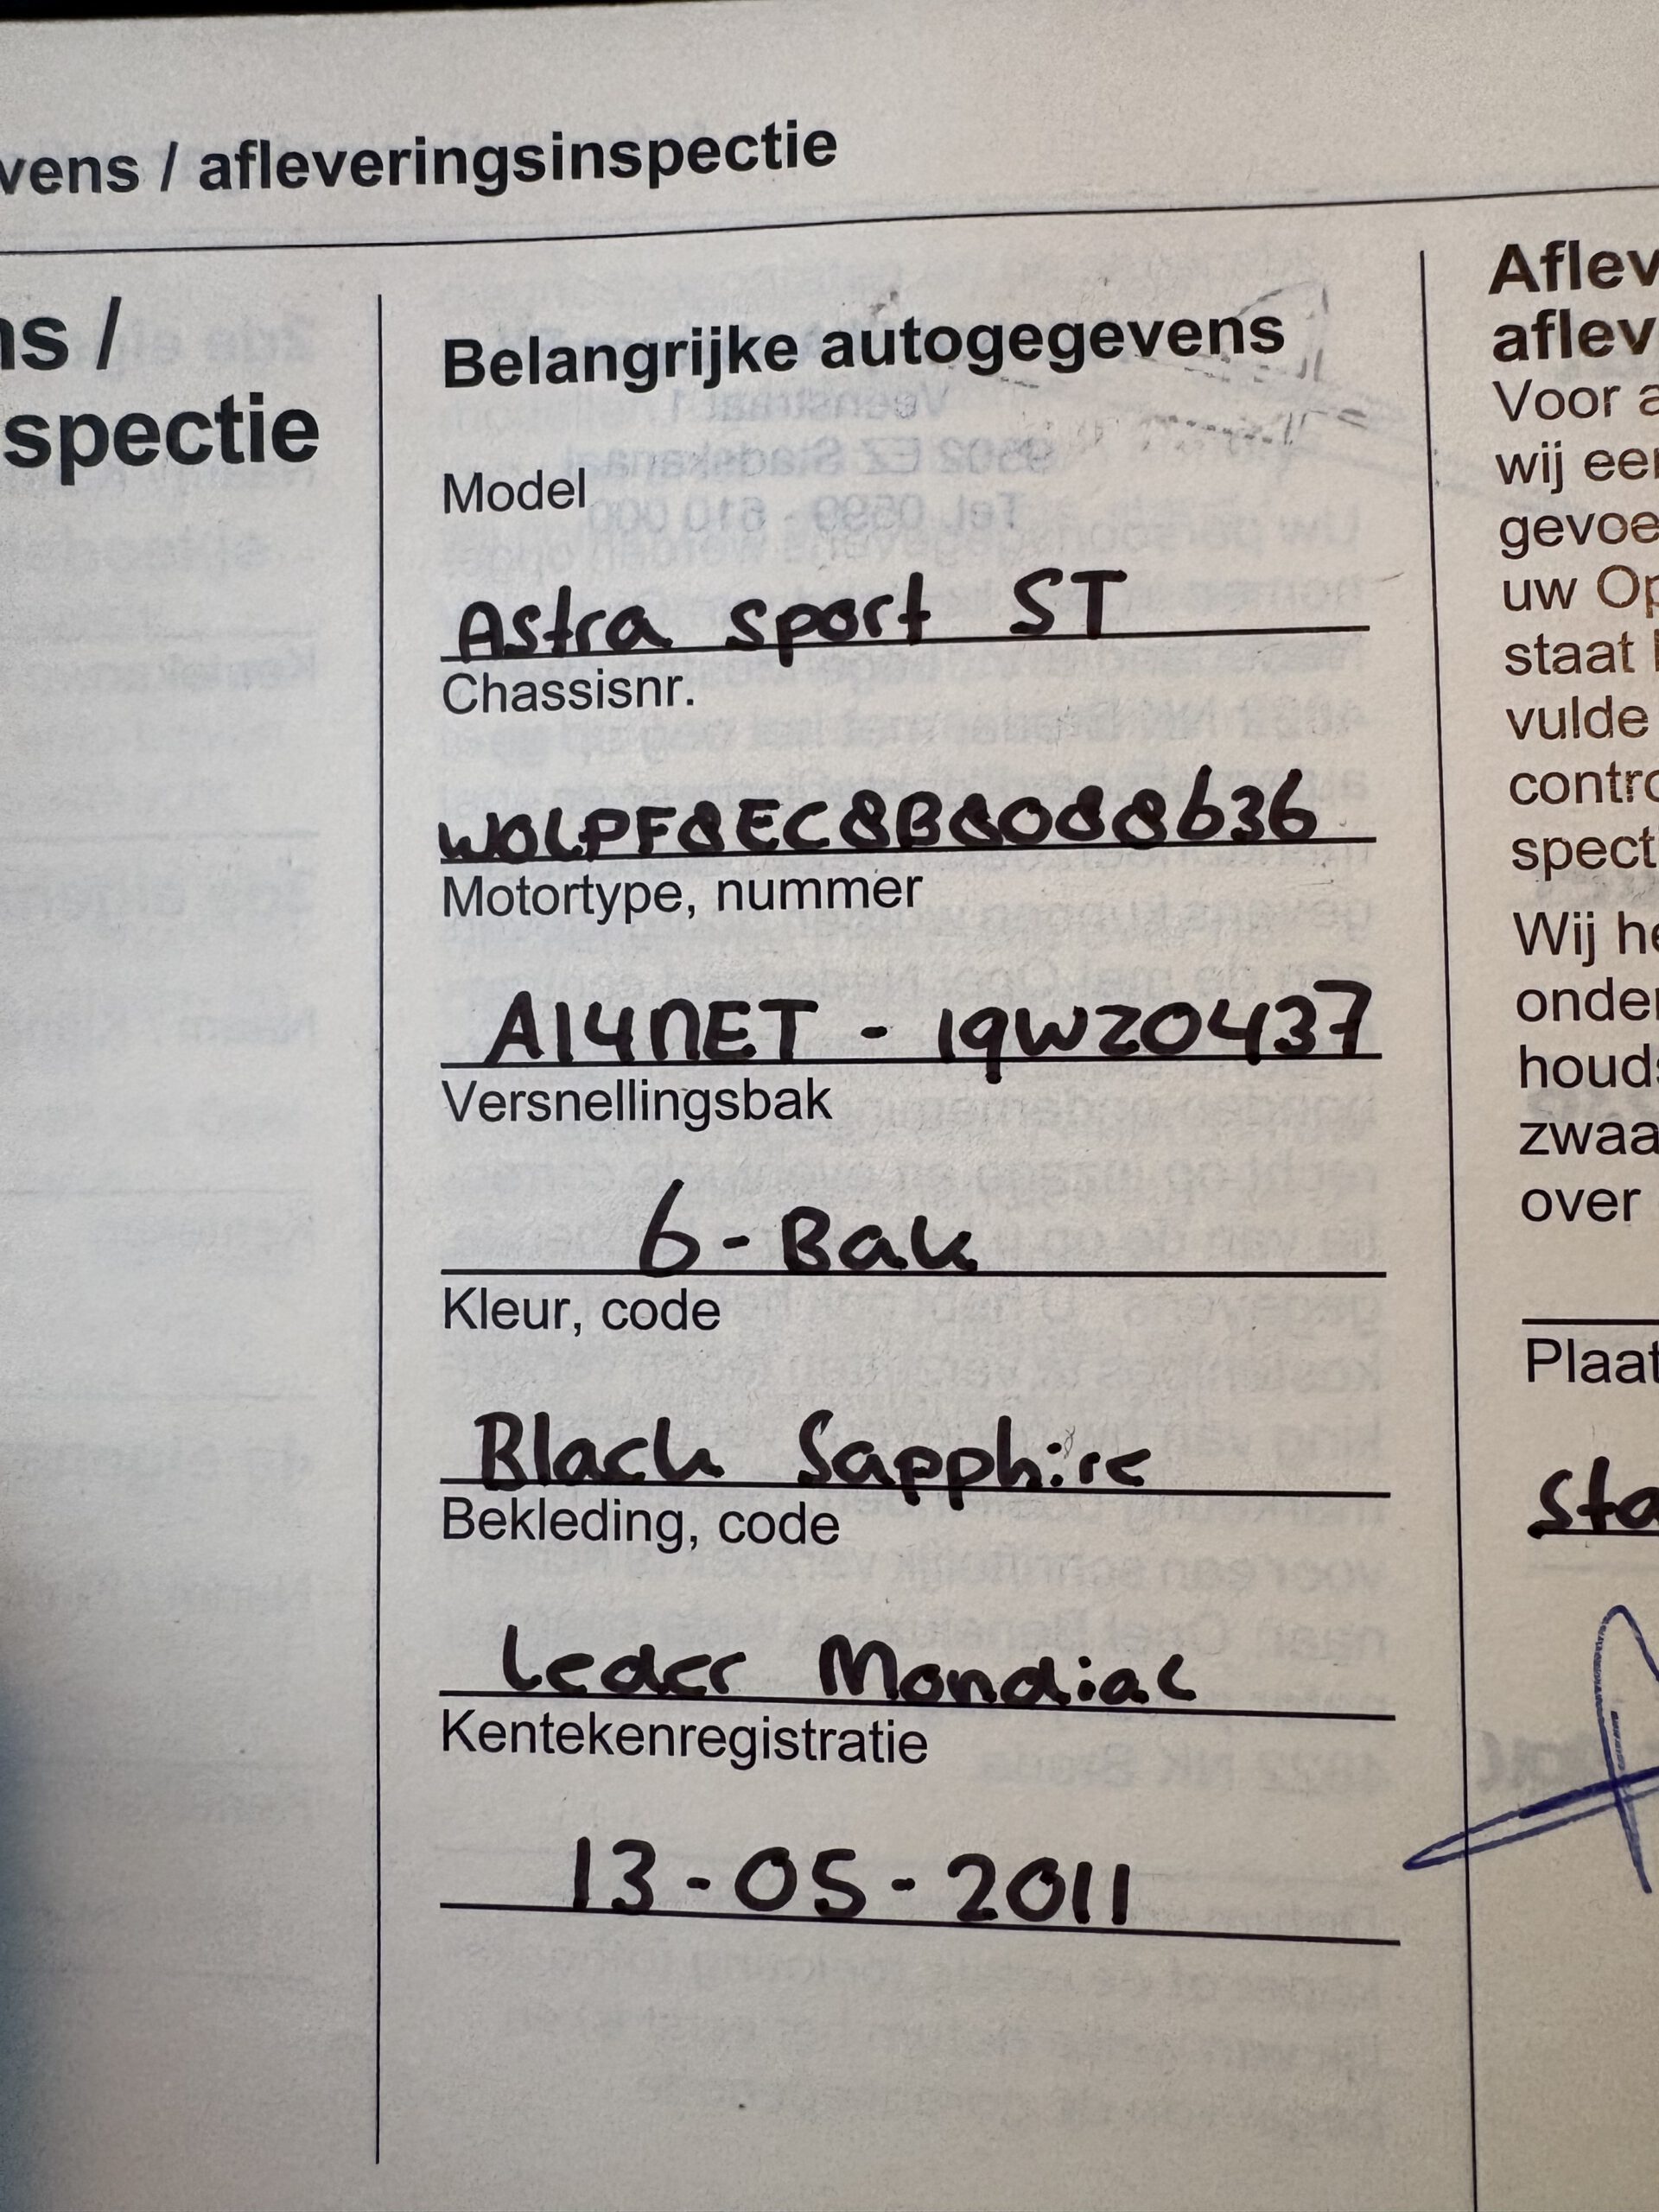 vens / afleveringsinspectie
ns /
spectie
Belangrijke autogegevens
Model
Astra sport ST
Chassisnr.
WOLPF8EC8B8088636
Motortype, nummer
A14NET - 19WZ0437
Versnellingsbak
6-Bak
Kleur, code
Black Sapphire
Bekleding, code
Leder Mondial
Kentekenregistratie
13-05-2011
Aflev
aflev
Voor a
wij eer
gevoe
uw Op
staat
vulde
contro
spect
Wij he
onder
houds
zwaa
over
Plaat
Sta